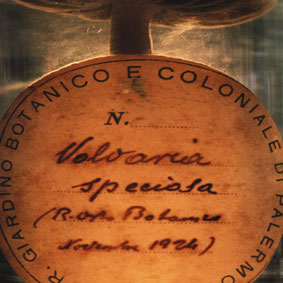 R. GIARDINO BOTANICO E COLONIALE DI PALERMO
N.
Volvaria
speciosa
(R. Orto Botanico
Novembre 1924)